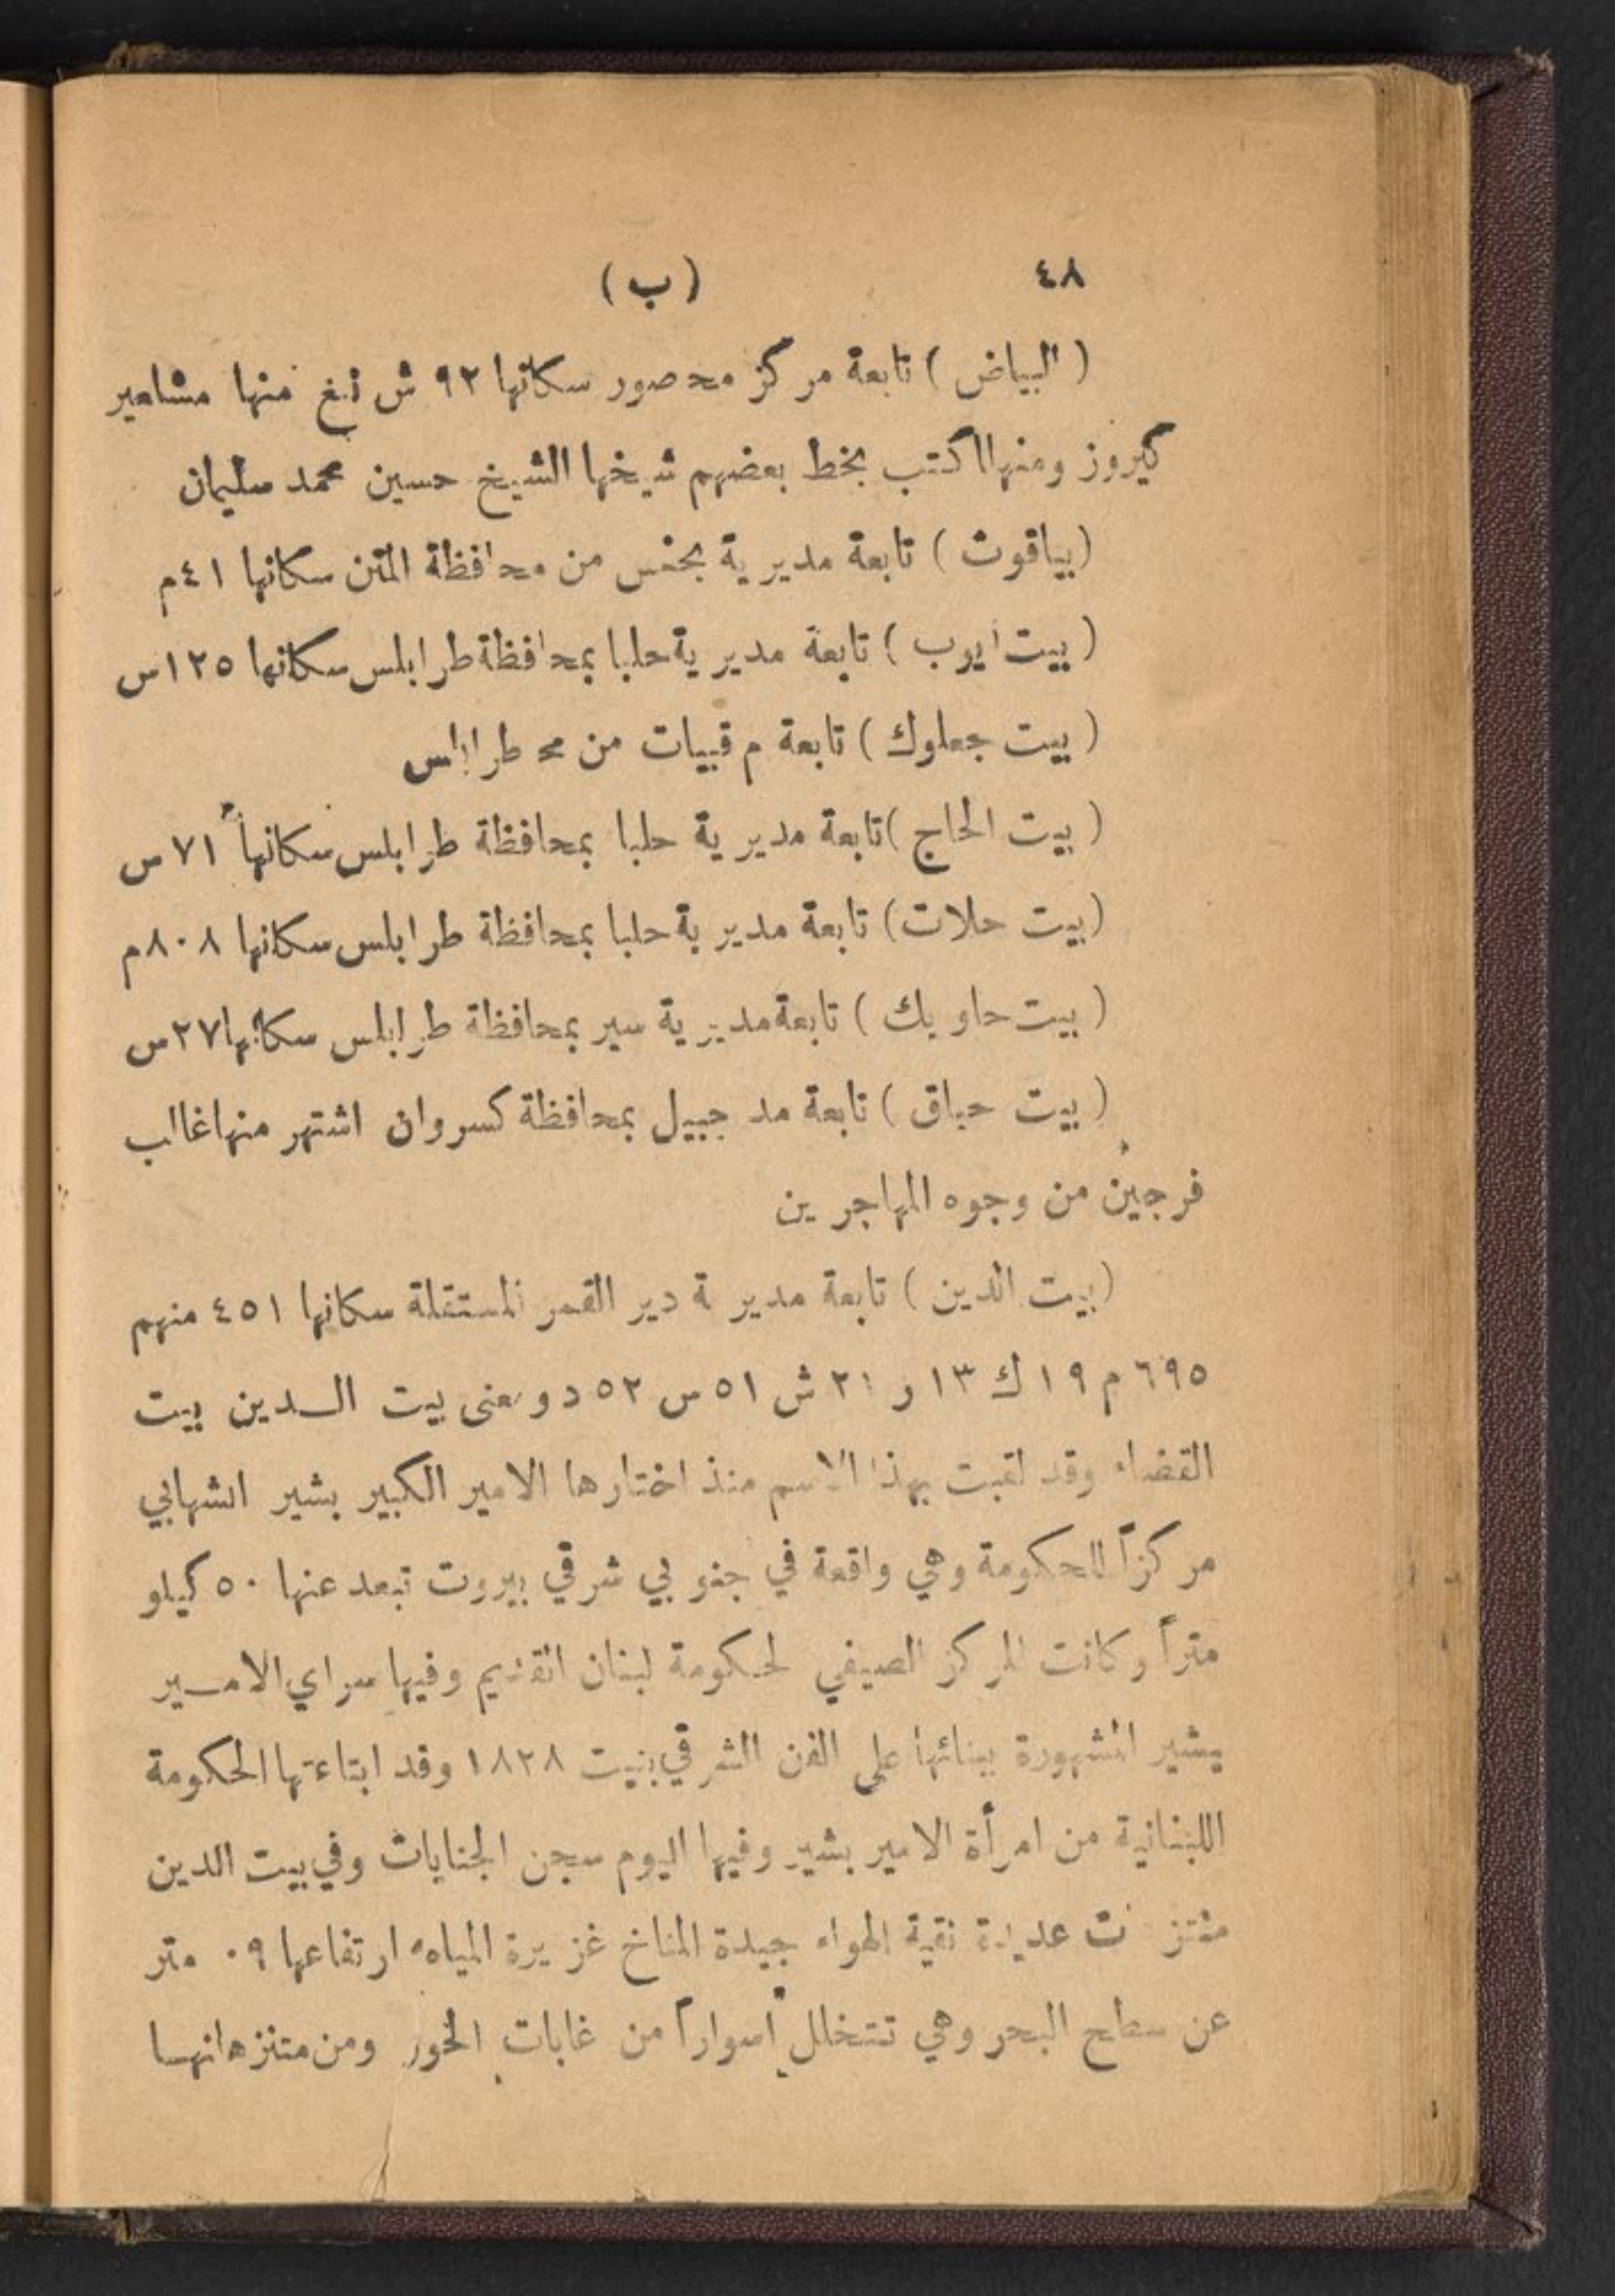 ٤٨ (ب)
(البياض) تابعة مركز محصور سكانها ٩٢ ش نبغ منها مشاهير
كيروز ومنها اكتب بخط بعضهم شيخها الشيخ حسين محمد سليمان
(بياقوث) تابعة مديرية بحنس من محافظة المتن سكانها ٤١م
(بيت ايوب) تابعة مديرية حلبا بمحافظة طرابلس سكانها ١٢٥س
(بيت جعلوك) تابعة م قبيات من مح طرابلس
(بيت الحاج) تابعة مديرية حلبا بمحافظة طرابلس سكانها ٧١س
(بيت حلات) تابعة مديرية حلبا بمحافظة طرابلس سكانها ٨٠٨م
(بيت حاويك) تابعة مديرية سير بمحافظة طرابلس سكانها ٢٧س
(بيت حباق) تابعة مد جبيل بمحافظة كسروان اشتهر منها غالب
فرجين من وجوه المهاجرين
(بيت الدين) تابعة مديرية دير القمر المستقلة سكانها ٤٥١ منهم
٦٩٥م ١٩ك ١٣ر ٢١ش ٥١س ٥٢د ومعنى بيت الــدين بيت
القضاء وقد لقبت بهذا الاسم منذ اختارها الامير الكبير بشير الشهابي
مركزاً للحكومة وهي واقعة في جنوبي شرقي بيروت تبعد عنها ٥٠ كيلو
متراً وكانت المركز الصيفي لحكومة لبنان القديم وفيها سراي الامــير
بشير المشهورة ببنائها على الفن الشرقي بنيت ١٨٢٨ وقد ابتاعتها الحكومة
اللبنانية من امرأة الامير بشير وفيها اليوم سجن الجنايات وفي بيت الدين
عديدة نقية الهواء جيدة المناخ غزيرة المياه ارتفاعها ٠٩ متر
عن سطح البحر وهي تتخلل اسواراً من غابات الحور ومن متنزهاتهــا